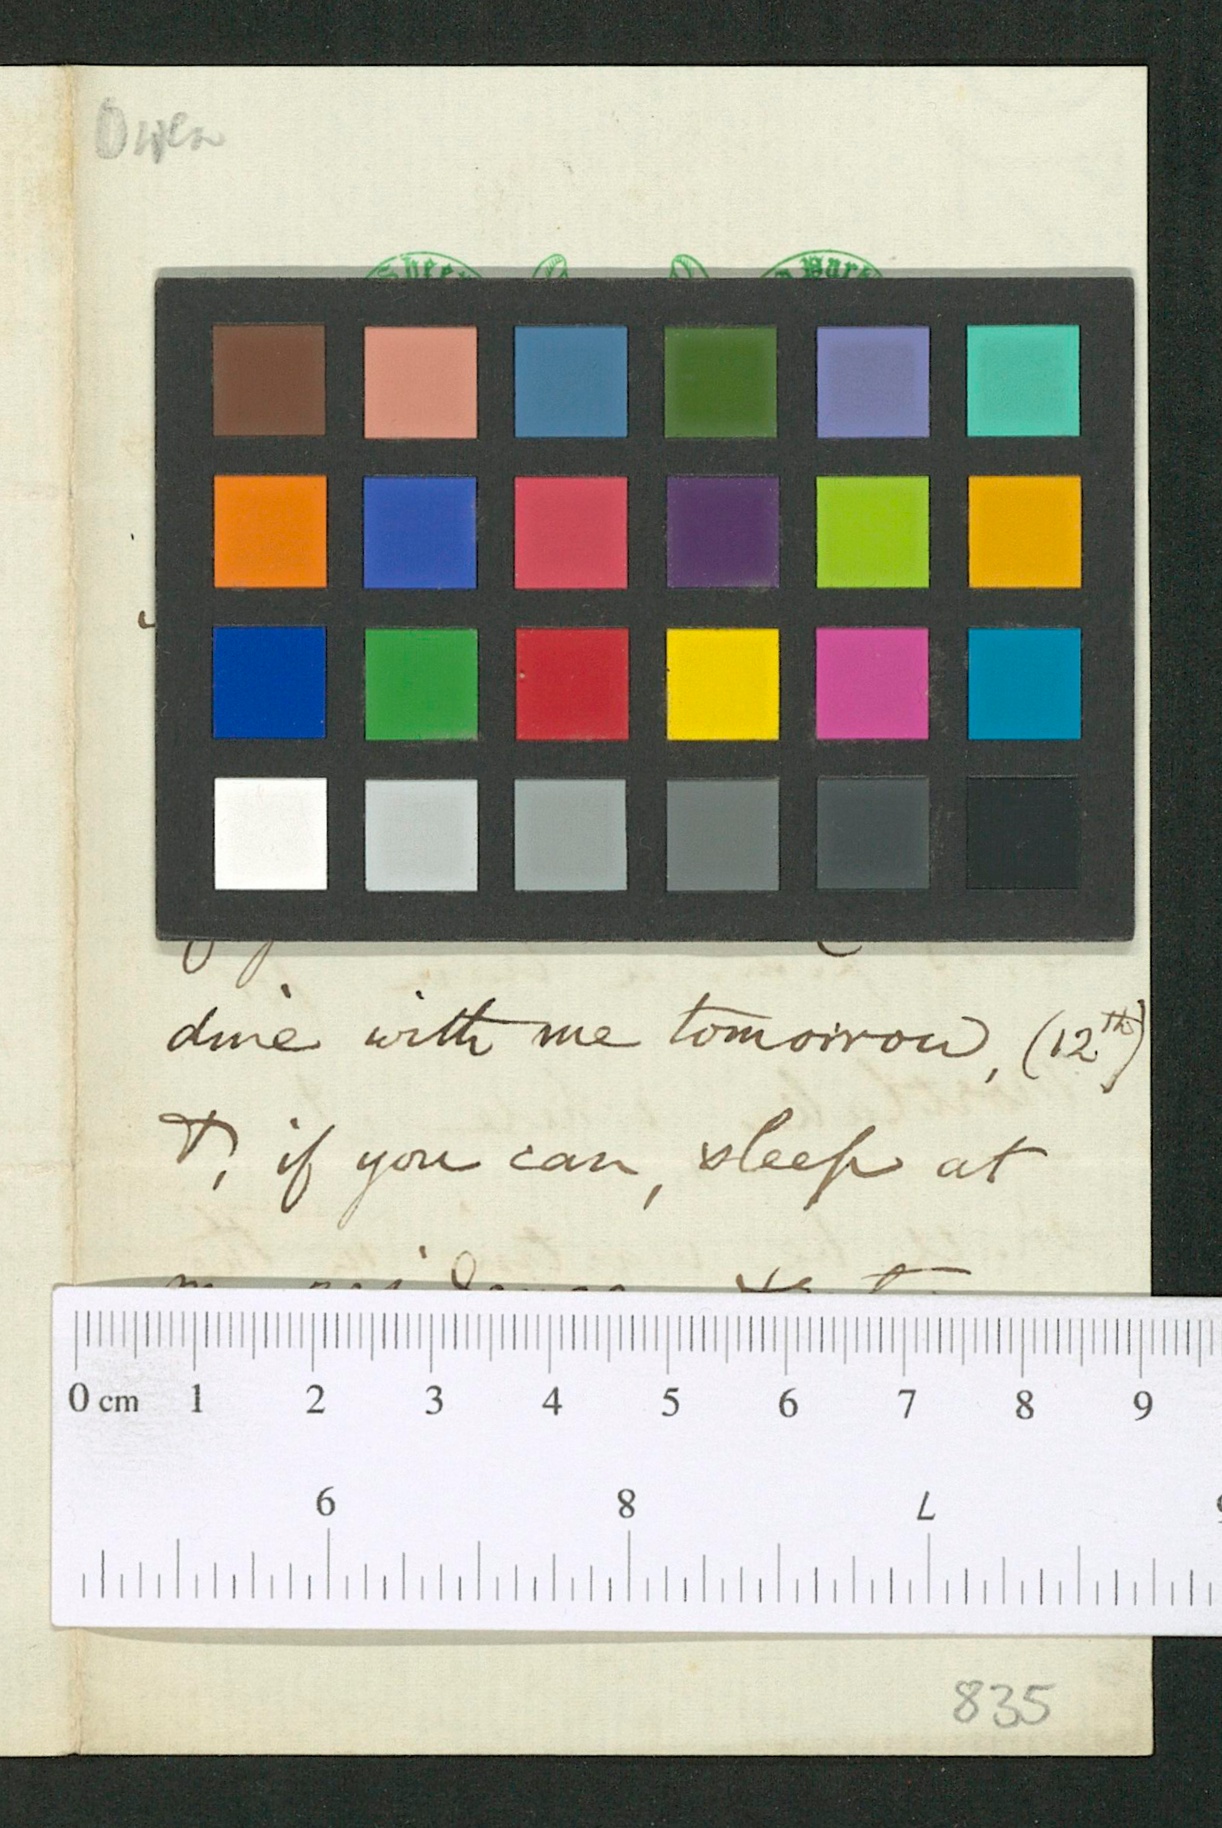 Owen
Shee
Park
dine with me tomorrow, (12th)
&, if you can, sleep at
my residence
0 cm 1 2 3 4 5 6 7 8 9
6 8 7
835